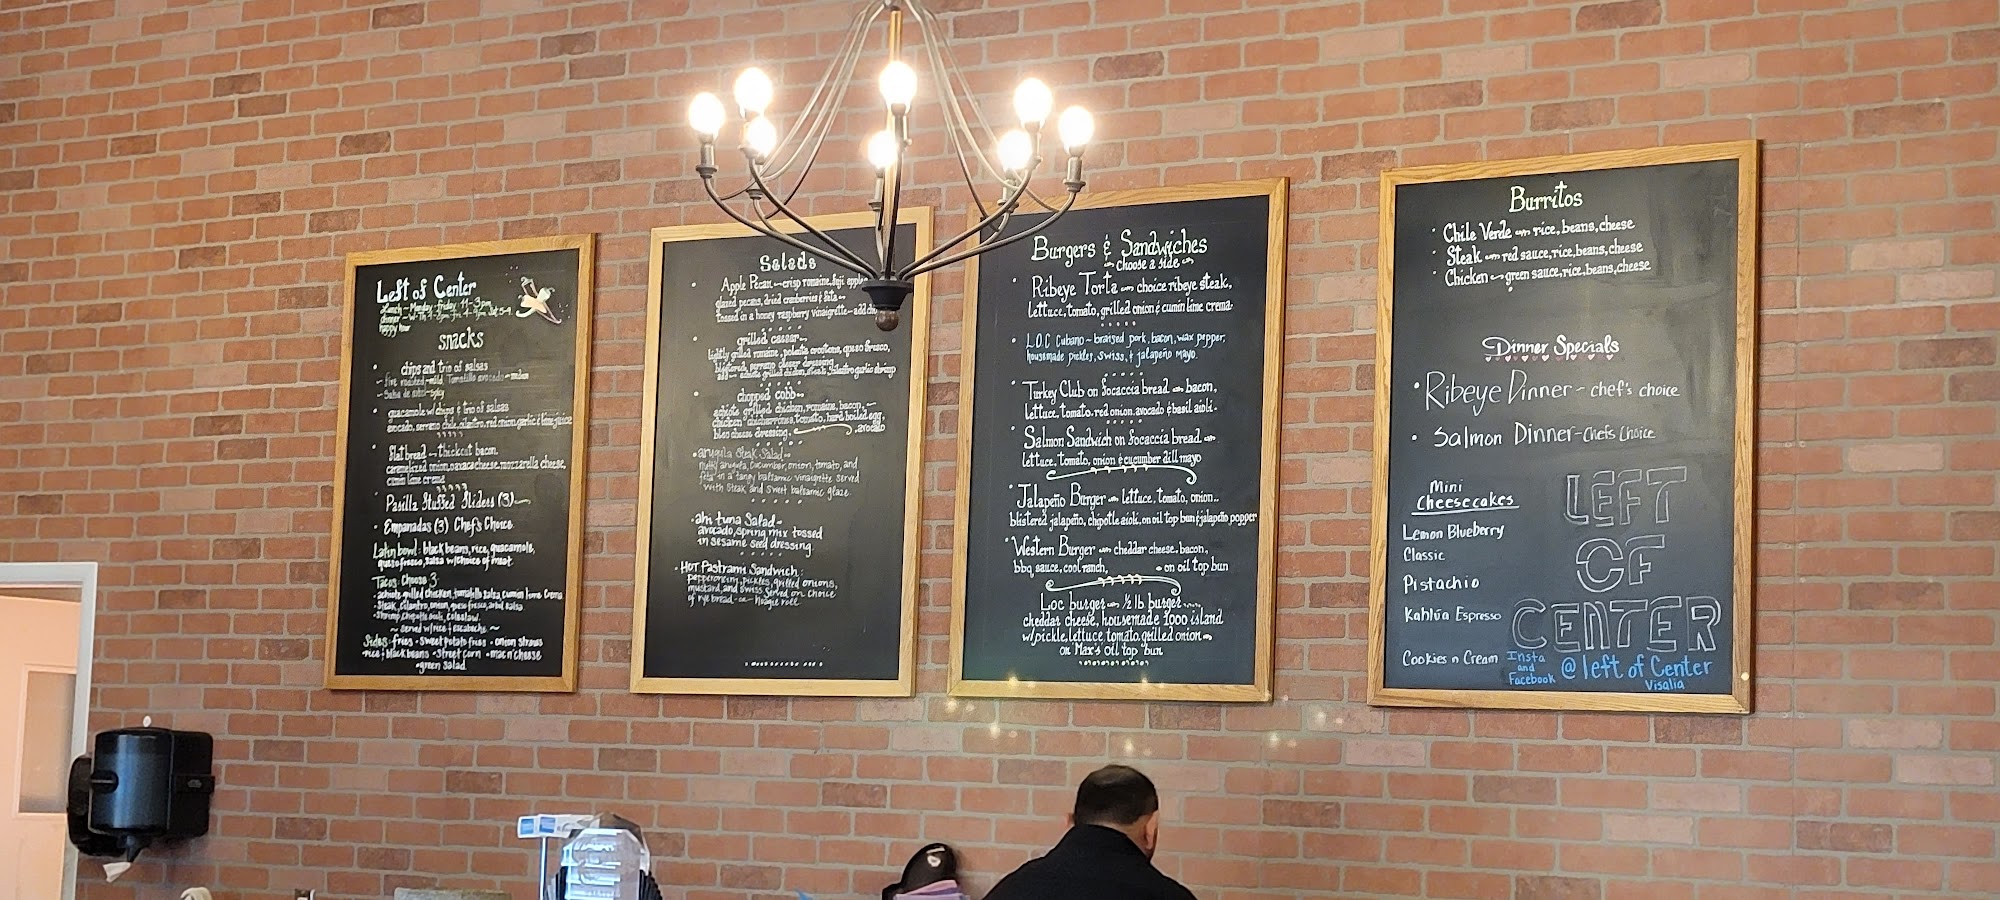 Left of Center
Lunch - Monday - Friday 11-3pm
happy hour
snacks
chips and trio of salsas
fire roasted - mild, Tomatillo avocado - medium
guacamole w/ chips & trio of salsas
avocado, serrano chile, cilantro, red onion, garlic & lime juice
flatbread - thickcut bacon,
caramelized onion, oaxaca cheese, mozzarella cheese,
cumin lime crema
Pasilla Stuffed Sliders (3)
Empanadas (3) Chef's Choice
Latin bowl: black beans, rice, guacamole,
queso fresco, salsa w/choice of meat.
Tacos: Choose 3
achiote grilled chicken, tomatillo salsa, cumin lime crema
Steak, cilantro, onion, queso fresco, arbol salsa
Shrimp, chipotle aioli, coleslaw.
~ served w/rice & escabeche ~
Sides: fries • sweet potato fries • onion straws
• rice & black beans • street corn • mac n' cheese
• green salad
Salads
Apple Pecan ~ crisp romaine, fuji apple
glazed pecans, dried cranberries & feta ~
tossed in a honey raspberry vinaigrette - add
grilled caesar ~
lightly grilled romaine, polenta croutons, queso fresco,
blistered serrano caesar dressing
chopped cobb ~
achiote grilled chicken, romaine, bacon,
chicken chicharrones, tomato, hard boiled egg,
bleu cheese dressing, avocado
• arugula Steak Salad -
nutty arugula, cucumber, onion, tomato, and
feta in a tangy balsamic vinaigrette served
with steak and sweet balsamic glaze.
• ahi tuna Salad -
avocado, spring mix tossed
in sesame seed dressing.
• HOT Pastrami Sandwich:
pepperoncini, pickles, grilled onions,
mustard, and swiss served on choice
of rye bread - or - hoagie roll
Burgers & Sandwiches
~ choose a side ~
• Ribeye Torta ~ choice ribeye steak,
lettuce, tomato, grilled onion & cumin lime crema
• L.O.C Cubano ~ braised pork, bacon, wax pepper,
housemade pickles, swiss, & jalapeño mayo.
• Turkey Club on focaccia bread ~ bacon,
lettuce, tomato, red onion, avocado & basil aioli.
• Salmon Sandwich on focaccia bread ~
lettuce, tomato, onion & cucumber dill mayo
• Jalapeño Burger ~ lettuce, tomato, onion..
blistered jalapeño, chipotle aioli, on oil top bun & jalapeño popper
• Western Burger ~ cheddar cheese, bacon,
bbq sauce, cool ranch, • on oil top bun
Loc burger ~ 1/2 lb burger....
cheddar cheese, housemade 1000 island
w/pickle, lettuce, tomato, grilled onion ~
on Max's oil top bun
Burritos
• Chile Verde ~ rice, beans, cheese
• Steak ~ red sauce, rice, beans, cheese
• Chicken ~ green sauce, rice, beans, cheese
Dinner Specials
• Ribeye Dinner - chef's choice
• Salmon Dinner - Chefs Choice
Mini
Cheesecakes
Lemon Blueberry
Classic
Pistachio
Kahlúa Espresso
Cookies n Cream
LEFT
OF
CENTER
Insta
and
Facebook
@left of Center
Visalia